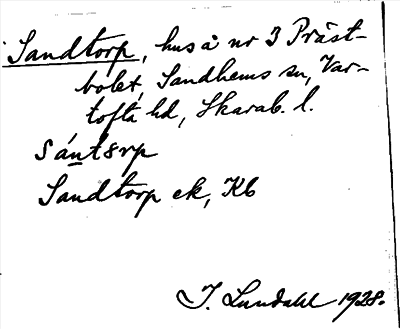 Sandtorp, hus å nr 3 Präst-
bolet, Sandhems sn, Var-
tofta hd, Skarab. l.
sántərp
Sandtorp ek, Kb
I. Lundahl 1928.